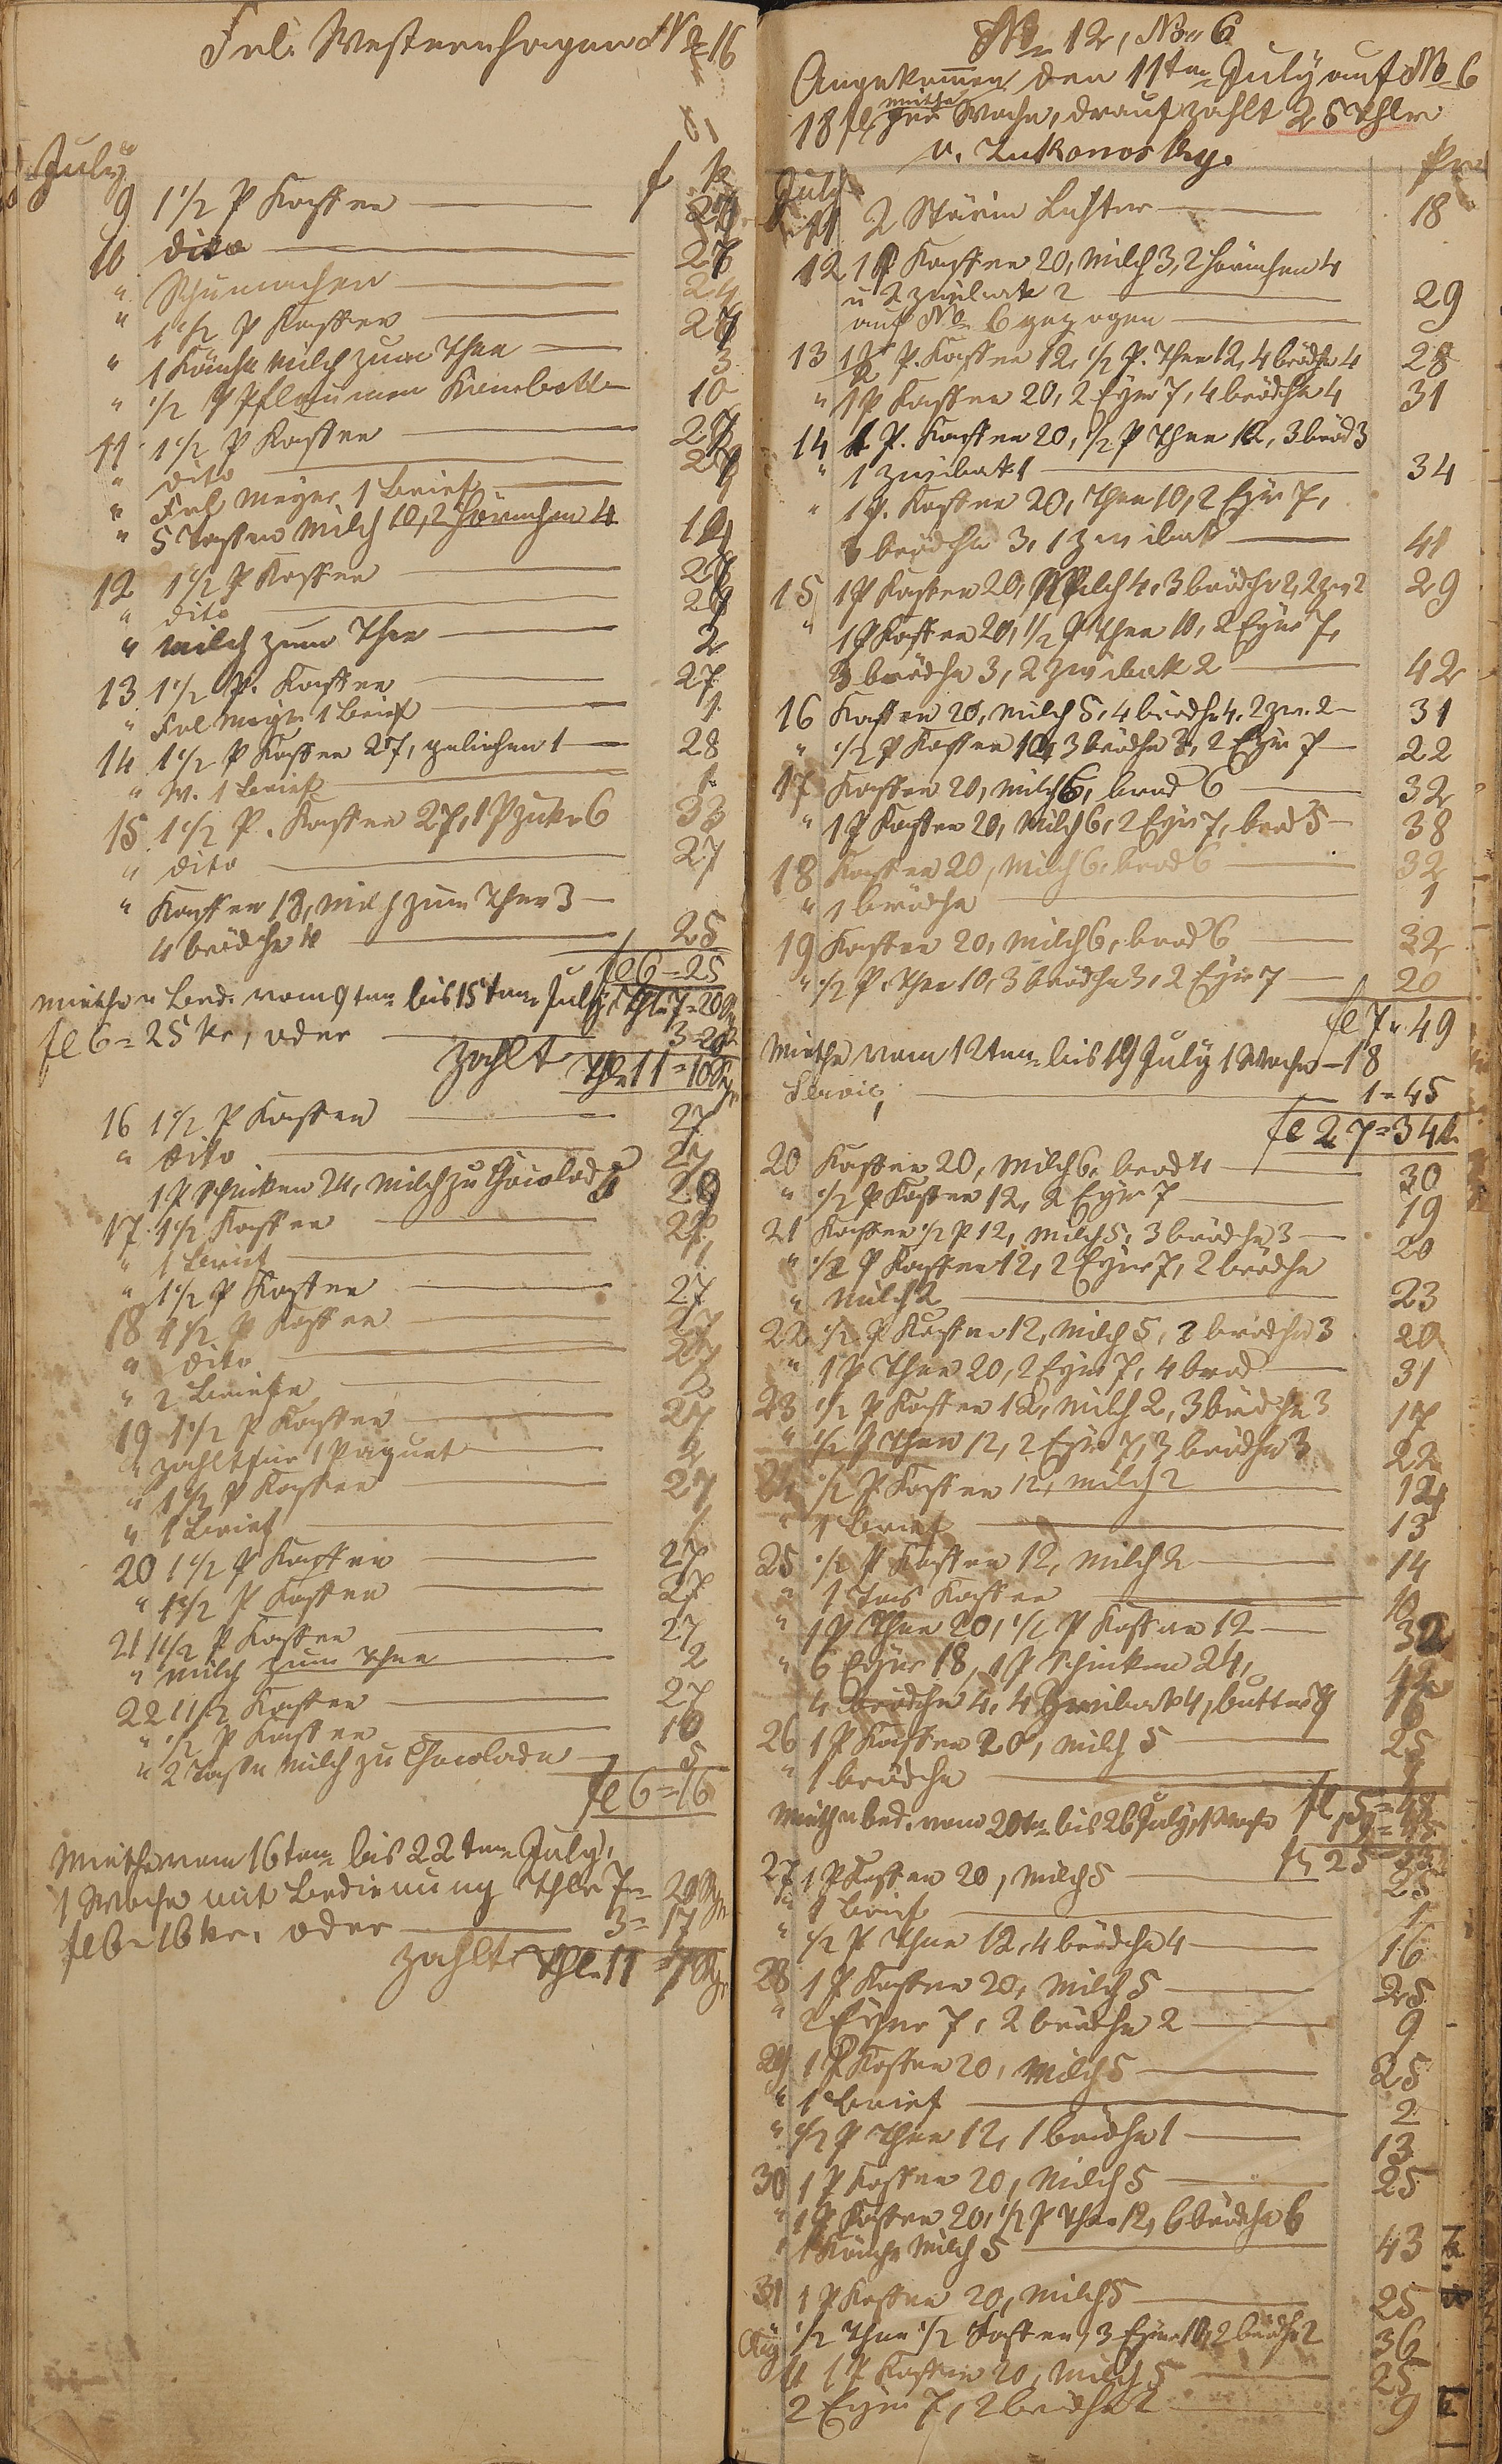 Frl. Westernhagen No 16
July
f k
9 1 1/2 P Kaffee — 27
10 dito — 27
" Schumacher — 24
" 1 1/2 P Kaffee — 27
" 1 Känche Milch zum Thee — 3
" 1/2 P Pflaumen — 10
11 1 1/2 P Kaffee — 27
" dito — 27
" Frl Meyer 1 Brief — 1
" 5 Tassen Milch 10, 2 Hörnchen 4 14
12 1 1/2 P Kaffee — 27
" dito — 27
" Milch zum Thee — 2
13 1 1/2 P. Kaffee — 27
" Frl Meyer 1 Brief — 1
14 1 1/2 P Kaffee 27, geliehen 1 — 28
" W. 1 Brief — 1
15 1 1/2 P. Kaffee 27, 1 P Zuker 6 33
" dito — 27
" Kaffee 18, Milch zum Thee 3 —
4 brödche 4 — 25
fl 6 = 25
Miethe u Bed. vom 9ten bis 15ten July Thlr 7 = 20
fl 6 = 25 kr, oder — 3 = 20
zahlt Thlr 11 = 10 Sgr
16 1 1/2 P Kaffee — 27
" dito — 27
1 P Schinken 24, Milch zu Chocolad 29
17 1 1/2 Kaffee — 27
" 1 Brief — 1
" 1 1/2 P Kaffee — 27
18 1 1/2 P Kaffee — 27
" dito — 27
" 2 Briefe — 2
19 1 1/2 P Kaffee — 27
" zahlt für 1 Paquet — 2
" 1 1/2 P Kaffee — 27
" 1 Brief — 1
20 1 1/2 P Kaffee — 27
" 1 1/2 P Kaffee — 27
21 1 1/2 P Kaffee — 27
" Milch zum Thee — 2
22 1 1/2 Kaffee — 27
" 1/2 P Kaffee — 10
" 2 Tasse Milch zu Chocolade — 5
fl 6 = 16
Miethe vom 16ten bis 22ten July,
1 Woche mit Bedienung Thlr 7 = 20 Sgr
fl 6 = 16 kr. oder — 3 = 17
zahlt Thlr 11 = 7 Sgr
No 12, No 6
Angekommen den 11ten July auf No 6
18 fl miethe per Woche, drauf zahlt 25 Thlr
v.
July
11 2 Stärin Lichter — 18
12 1 P Kaffee 20, Milch 3, 2 Hörnchen 4
u 2 zwibak 2 — 29
auf No 6 gezogen —
13 1/2 P. Kaffee 12, 1/2 P. Thee 12, 4 brödche 4 28
" 1 P Kaffee 20, 2 Eyer 7, 4 brödche 4 31
14 1 P. Kaffee 20, 1/2 P Thee 12, 3 bröd 3
" 1 zwibak 1 — 34
" 1 P. Kaffee 20, Thee 10, 2 Eyer 7,
3 brödche 3, 1 zwibak — 41
15 1 P Kaffee 20, Milch 4, 3 brödche 2, 2 zw 2 29
" 1 P Kaffee 20, 1/2 P Thee 10, 2 Eyer 7,
3 brödche 3, 2 zwibak 2 — 42
16 Kaffee 20, Milch 5, 4 brödche 4, 2 zw. 2 — 31
" 1/2 P Kaffee 12, 3 brödche 3, 2 Eyer 7 — 22
17 Kaffee 20, Milch 6, brod 6 — 32
" 1 P Kaffee 20, Milch 6, 2 Eyer 7, brod 5 — 38
18 Kaffee 20, Milch 6, brod 6 — 32
" 1 brödche — 1
19 Kaffee 20, Milch 6, brod 6 — 32
" 1/2 P. Thee 10, 3 brödche 3, 2 Eyer 7 — 20
fl 7 " 49
Miethe vom 12ten bis 19 July 1 Woche — 18
Servis, — 1 = 45
fl 27 = 34 k
20 Kaffee 20, Milch 6, brod 4 — 30
" 1/2 P Kaffee 12, 2 Eyer 7 — 19
21 Kaffee 1/2 P 12, Milch 5, 3 brödche 3 — 20
" 1/2 P Kaffee 12, 2 Eyer 7, 2 brödche
" Milch 2 — 23
22 1/2 P Kaffee 12, Milch 5, 3 brödche 3 20
" 1 P Thee 20, 2 Eyer 7, 4 brod — 31
23 1/2 P Kaffee 12, Milch 2, 3 brödche 3 17
" 1/2 P Thee 12, 2 Eyer 7, 3 brödche 3 22
24 1/2 P Kaffee 12, Milch 2 — 14
" 1 Brief — 13
25 1/2 P Kaffee 12, Milch 2 — 14
" 1 Tas Kaffee — 10
" 1 P Thee 20, 1/2 P Kaffee 12 — 32
" 6 Eyer 18, 1 P Schinken 24, 42
4 brödche 4, 4 Zwibak 4, butter 8 16
26 1 P Kaffee 20, Milch 5 — 25
" 1 brödche — 1
Miethe u bed. vom 20ten bis 26 July, 1 Woche fl 5 = 48
fl 25 = 33
27 1 P Kaffee 20, Milch 5 — 25
" 1 Brief — 1
" 1/2 P Thee 12, 4 brödche 4 — 16
28 1 P Kaffee 20, Milch 5 — 25
" 2 Eyer 7, 2 brödche 2 — 9
29 1 P Kaffee 20, Milch 5 — 25
" 1 Brief — 2
" 1/2 P Thee 12, 1 brödche 1 — 13
30 1 P Kaffee 20, Milch 5 — 25
" 1 P Kaffee 20, 1/2 P Thee 12, 6 brödche 6
" 1 Känche Milch 5 — 43
31 1 P Kaffee 20, Milch 5 — 25
" 1/2 Thee 1/2 Kaffee, 3 Eyer 10, 2 brödche 2 36
Aug
1 1 P Kaffee 20, Milch 5 — 25
2 Eyer 7, 2 brödche 2 — 9